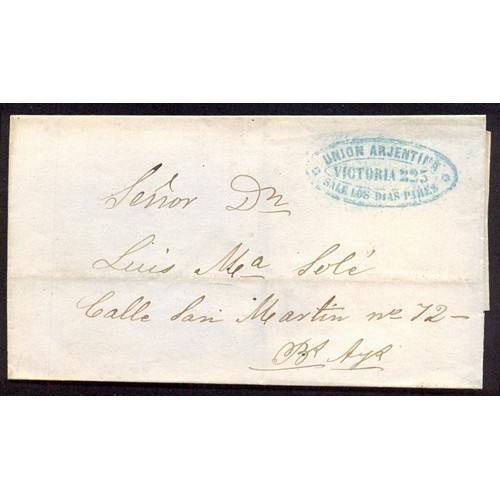 UNION ARJENTINA
VICTORIA 225
SALE LOS DIAS PARES
Señor Dn
Luis Ma Solé
Calle San Martin no 72–
Bs Ays